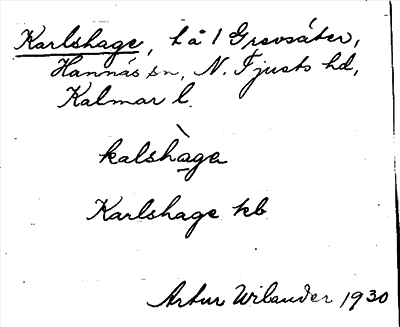 Karlshage, t å 1 Grevsäter,
Hannäs sn, N. Tjusts hd,
Kalmar l.
kalshàga
Karlshage kb
Artur Wilander 1930